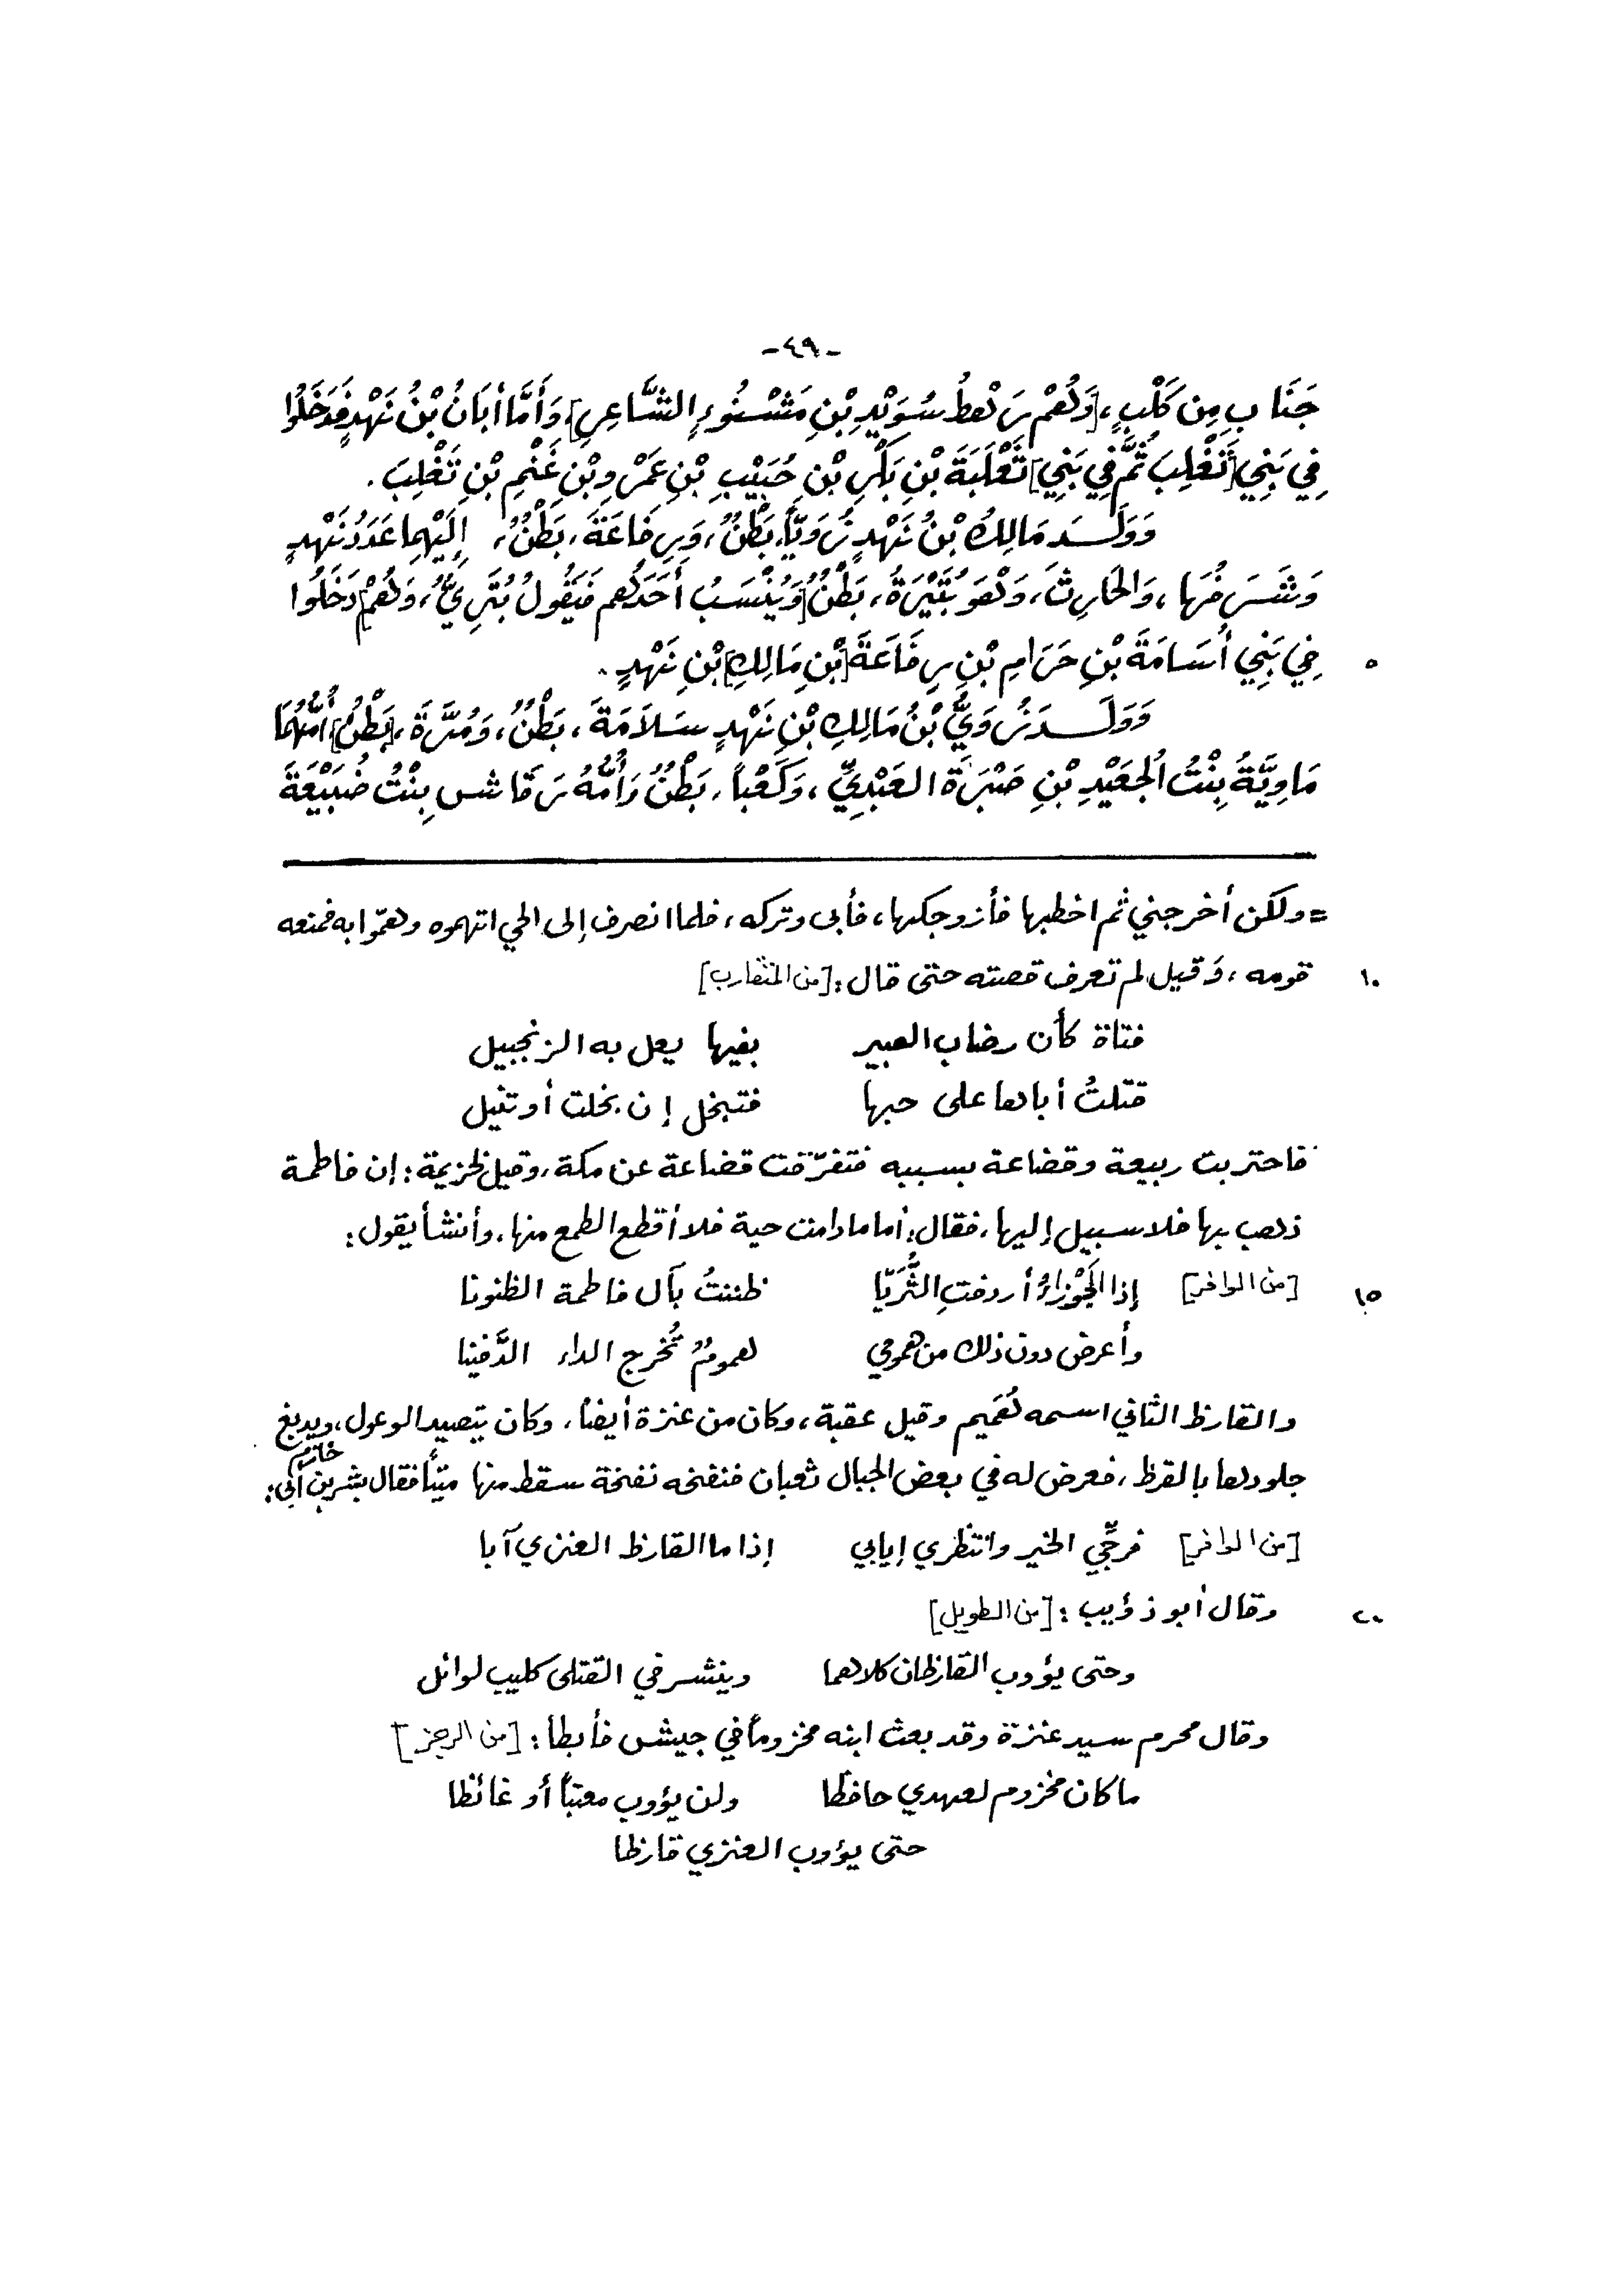 -٤٩-
جَنَابٍ مِن كَلْبٍ، [وَهُمْ رَهْطُ سُوَيْدِ بْنِ مَشْنُوءٍ الشَّاعِرِ]، وَأَمَّا أبَانُ بْنُ نَهْدٍ فَدَخَلُوا
فِي بَنِي [تَغْلِبَ ثُمَّ فِي بَنِي] ثَعْلَبَةَ بْنِ بَكْرِ بْنِ حُبَيْبِ بْنِ عَمْرِو بْنِ غَنْمِ بْنِ تَغْلِبَ.
وَوَلَـدَ مَالِكُ بْنُ نَهْدٍ زُوَيّاً، بَطْنٌ، وَرِفَاعَةَ، بَطْنٌ، إِلَيْهِمَا عَدَدُ نَهْدٍ
وَشَرَفُهَا، وَالحَارِثَ، وَهُوَ بُتَيْرَةُ، بَطْنٌ [وَيُنْسَبُ أَحَدُهُم فَيَقُولُ بُتَرِيٌّ، وَهُمْ] دَخَلُوا
فِي بَنِي أُسَامَةَ بْنِ حَرَامِ بْنِ رِفَاعَةَ [بْنِ مَالِكِ] بْنِ نَهْدٍ. ٥
وَوَلَـدَ زُوَيُّ بْنُ مَالِكِ بْنِ نَهْدٍ سَلاَمَةَ، بَطْنٌ، وَمُرَّةَ، [بَطْنٌ]، أُمُّهُمَا
مَاوِيَّةُ بِنْتُ الجُعَيْدِ بْنِ صَبْرَةَ العَبْدِيِّ، وَكَعْباً، بَطْنٌ وَأُمُّهُ رَقَاشِ بِنْتُ ضُبَيْعَةَ
= ولكن أخرجني ثم اخطبها فأزوجكها، فأبى وتركه، فلما انصرف إلى الحي اتهموه وهمّوا به فمنعه
١٠ قومه، وقيل لم تعرف قصته حتى قال: [من المتقارب]
فتاة كأن رضاب العبير بفيها يعل به الزنجبيل
قتلتُ أباها على حبها فتبخل إن بخلت أو تنيل
فاحتربت ربيعة وقضاعة بسببه فتفرّقت قضاعة عن مكة، وقيل لخزيمة: إن فاطمة
ذهب بها فلا سبيل إليها، فقال: أما ما دامت حية فلا أقطع الطمع منها، وأنشأ يقول:
١٥ [من الوافر] إذا الجَوْزاءُ أردفتِ الثُّرَيّا ظننتُ بآل فاطمة الظنونا
وأعرض دون ذلك من همومي همومٌ تُخرج الداء الدَّفينا
والقارظ الثاني اسمه هُمَيم وقيل عقبة، وكان من عنزة أيضاً، وكان يتصيد الوعول، ويدبغ
جلودها بالقرظ، فعرض له في بعض الجبال ثعبان فنفخه نفخة سقط منها ميتاً فقال بشر بن أبي خازم:
[من الوافر] فرجّي الخير وانتظري إيابي إذا ما القارظ العنزي آبا
٢٠ وقال أبو ذؤيب: [من الطويل]
وحتى يؤوب القارظان كلاهما وينشر في القتلى كليب لوائل
وقال محرم سيد عنزة وقد بعث ابنه مخزوماً في جيش فأبطأ: [من الرجز]
ما كان مخزوم لعهدي حافظا ولن يؤوب معتباً أو غائظا
حتى يؤوب العنزي قارظا